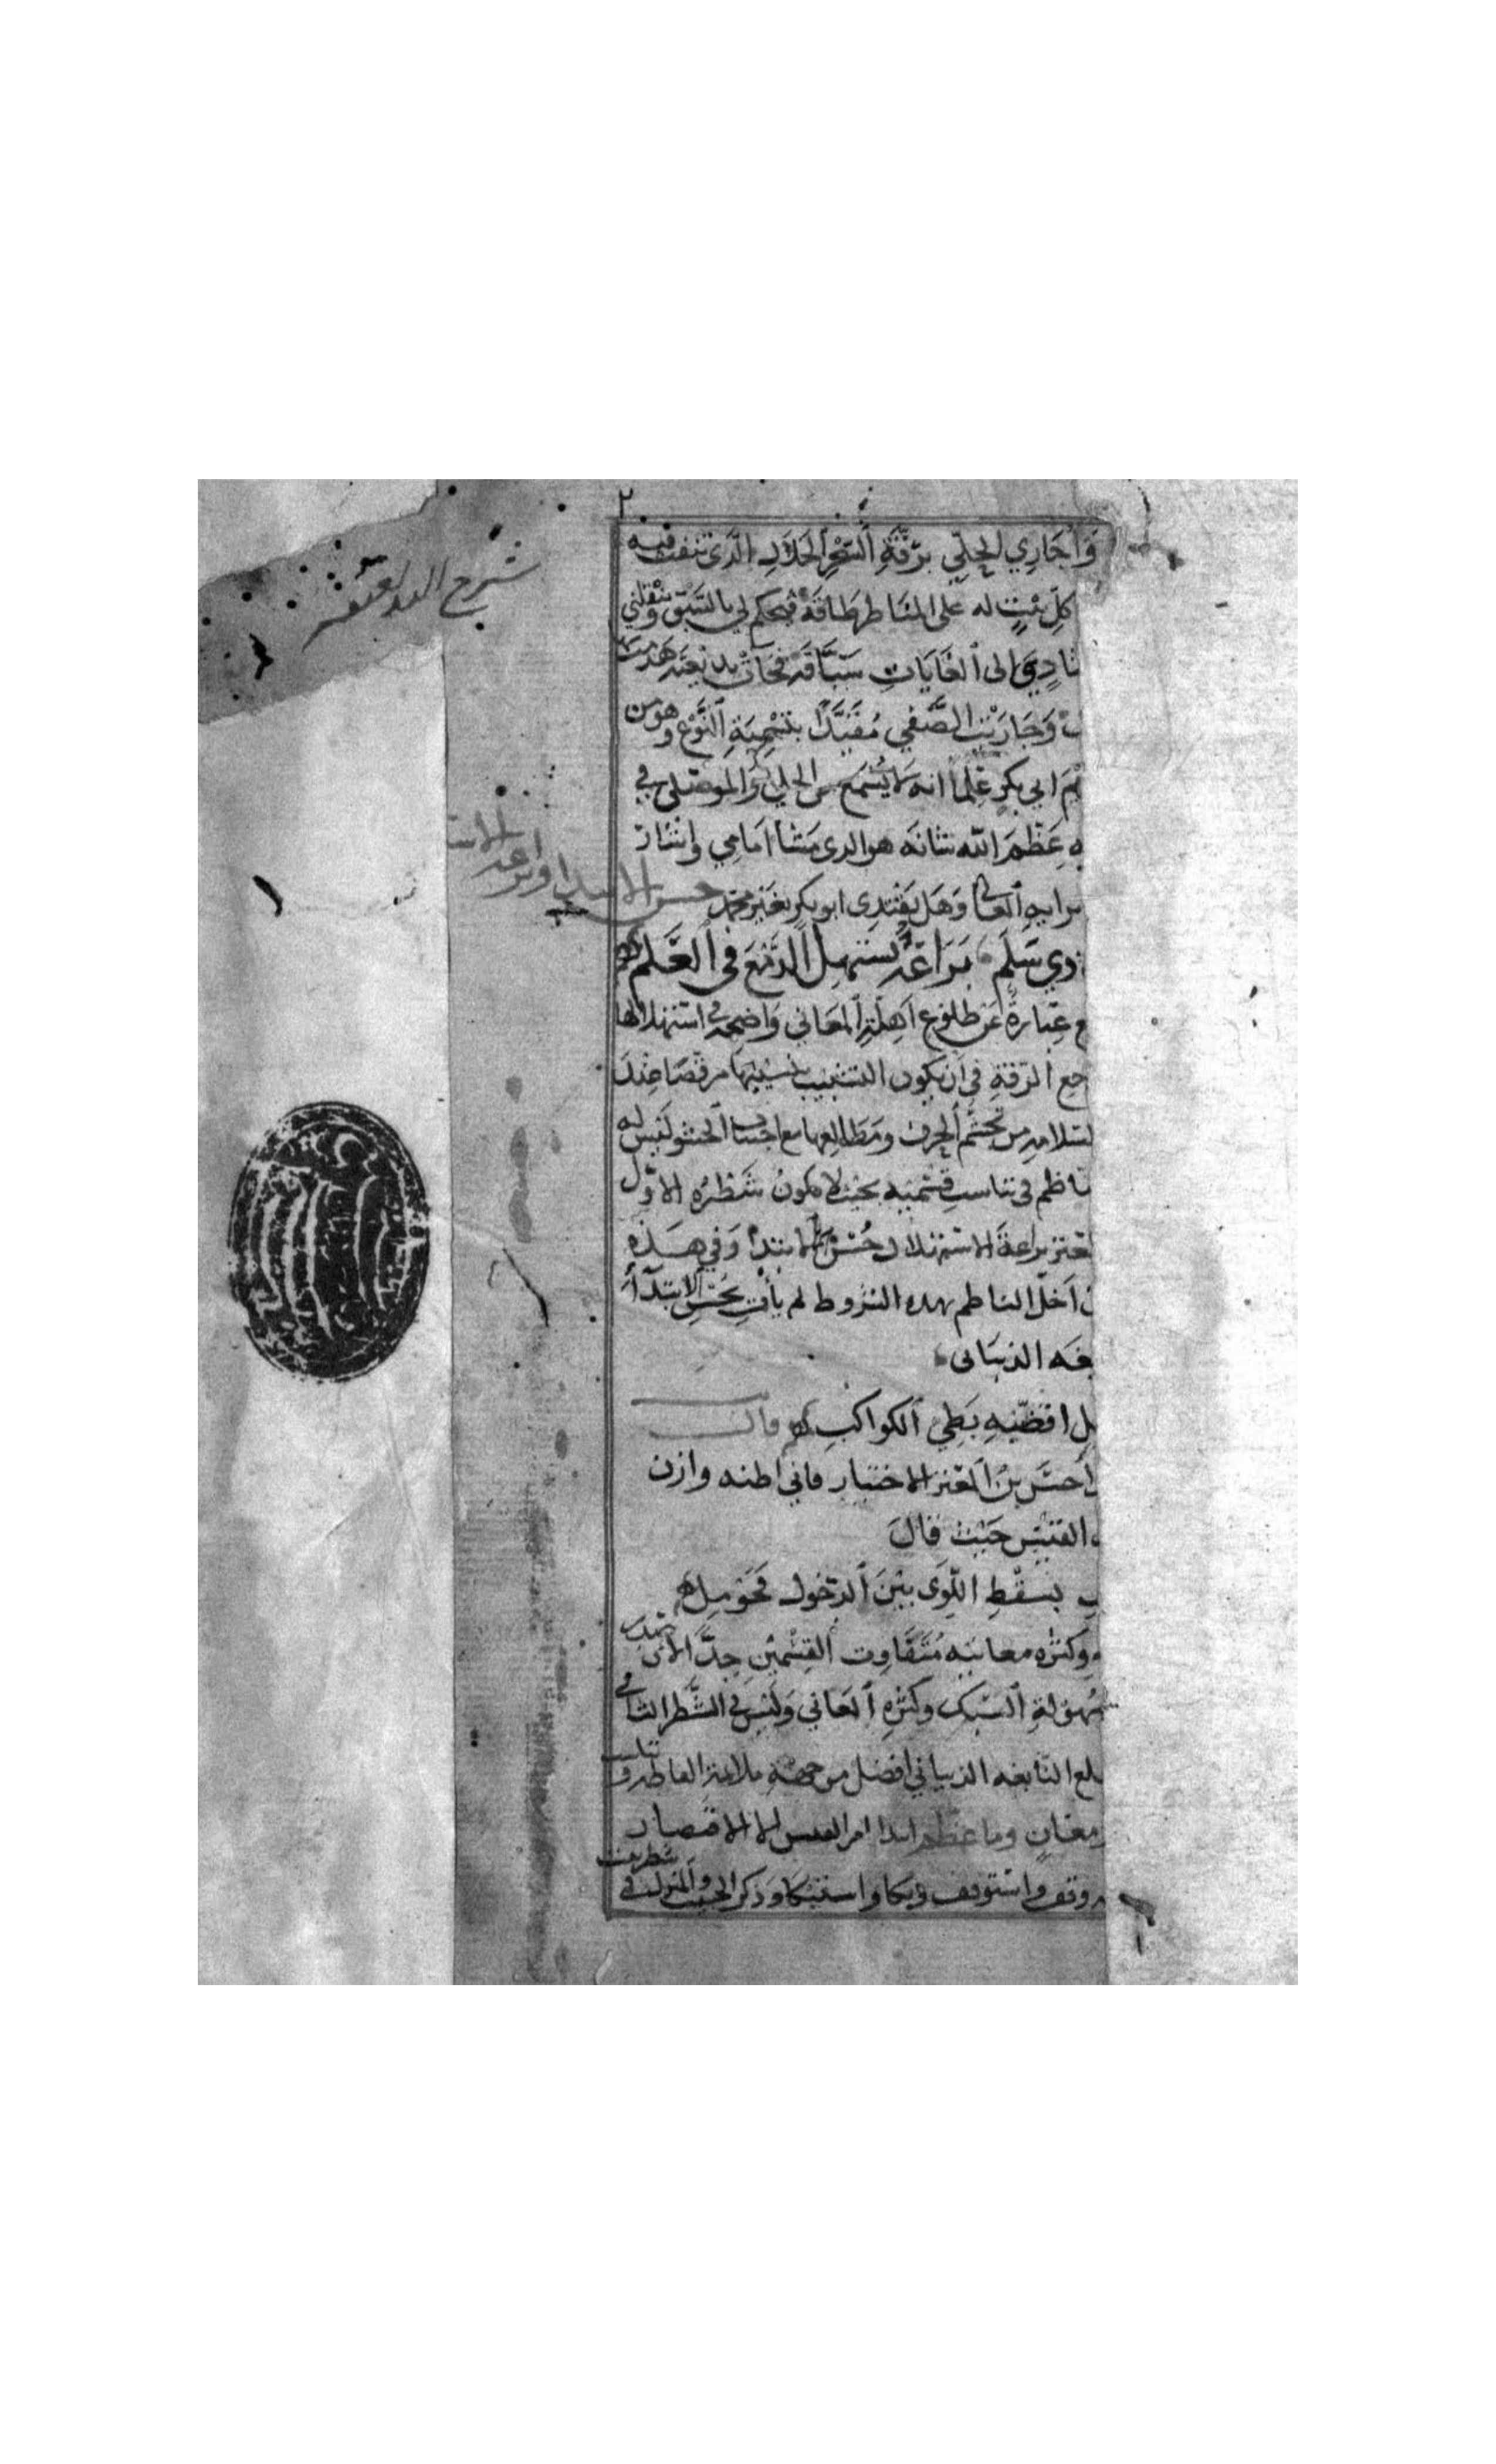 ٢
شرح البديعية
وَأُجَارِي الحِلِّي بِرِقَّةِ السِّحْرِ الحَلَالِ الَّذِي ينفث فيه
كلّ بَيْتٍ له على المناظر طَاقَة فيحكم لي بالسَّبْق وينقلني
إلى الغَايَاتِ سَبَّاقَة فجَاءَت بديعيَّة هدمت
وَجَارَيْت الصَّفي مُقَيَّدًا بتَسْمِيَةِ النَّوْع وهو من
ابي بكرٍ عِلْمًا انه لا يُسْمَع من الحلي والموصلي في
عَظَّمَ الله شانَه هو الذي مَشَا امَامِي واشار
وَهَل يَقْتَدِي ابو بكر بغير محمد
حسن الابتدا وبراعة الاست
ذي سَلَم بَرَاعَة تستَهِلّ الدَّمْعَ في العَلَم
عِبَارَة عَن طلوع أَهِلَّةِ المَعَاني وَاضِحَة في استهلالها
الرِّقَة في أن يكون التشبيب بنسيبها مرقصًا عِنْدَ
من تجشّم الحزن ومَطَالِعها مع اجتناب الحشو لَيْسَ له
في تناسب قسْمَيْه بحيث لا يكونُ شَطْرُه الاوّل
براعةَ الاستهلال حُسْن الابتدا وَفي هَذه
اخَلّ الناظم بهذه الشروط لم يأتِ بحُسْنِ الابتدَآءِ
الذبيانى
اقاسِيهِ بَطِيِّ الكواكبِ قال
ابْن المعتز الاختيار فاني اظنه وازن
القَيْس حَيْث قالَ
بسِقْطِ اللِّوَى بَيْنَ الدَّخول فَحَوْمَلِ
وكثره معانيه مُتَفَاوِت القِسْمَيْن جِدًّا لأن
السَّبك وكثرةِ المعَاني وَلَيْسَ في الشَّطر الثاني
النابغه الذبياني افضل من جهة ملاءمة الفاظه
مَعَانٍ وما عظم ابتدا امرء القيس إلا الاقتصار
وقف واستوقف وبكا واستبكا وذكر الحبيب والمنزل في